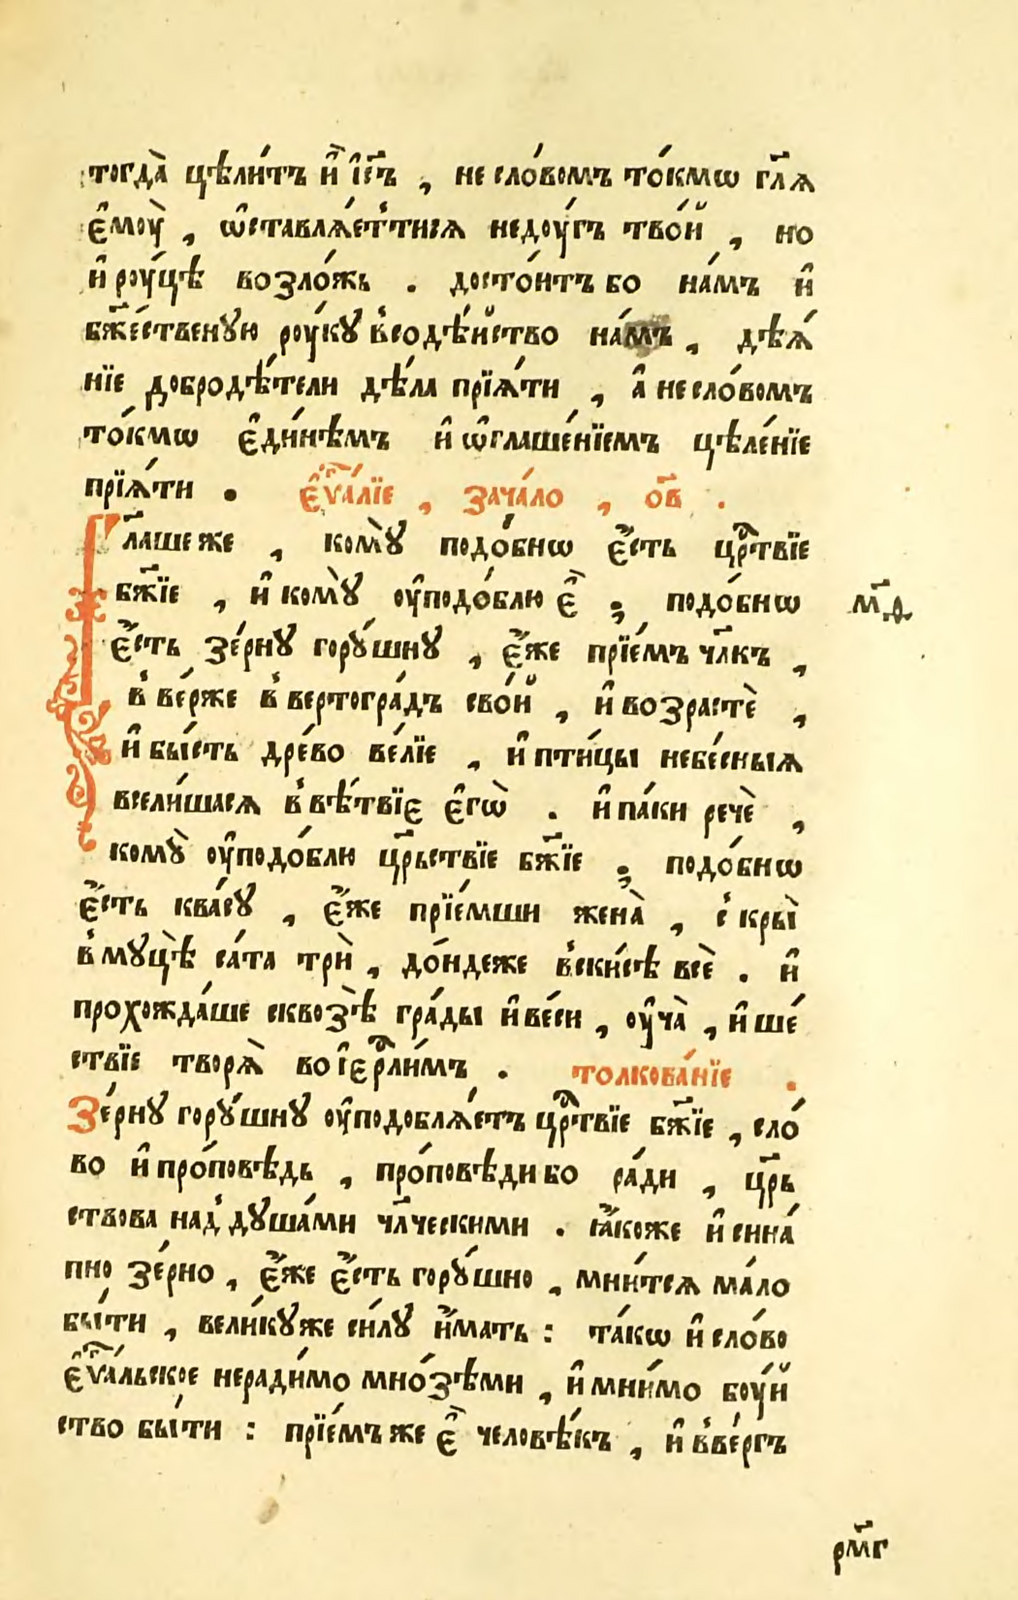 тогда̀ цѣли́тъ и҆̀ і҆с҃ъ , не сло́вомъ то́кмѡ гл҃ѧ
є҆мꙋ̀ , ѡ҆ставлѧ́етътисѧ недꙋ́гъ тво́й , но
и҆ рꙋ́цѣ возло́жь . досто́итъ бо на́мъ и҆
бж҃е́ственꙋю рꙋ́кꙋ в̾содѣ́йство на́мъ , дѣѧ́
нїе добродѣ́тели дѣ́ла прїѧ́ти , а҆ не сло́вомъ
то́кмѡ є҆ди́нѣмъ и҆ ѡ҆глаше́нїемъ цѣле́нїе
прїѧ́ти . є҆ѵⷢ҇а́лїе , зача́ло , ѻ҃в .
Гл҃аше же , комꙋ̀ подо́бнѡ є҆́сть црⷭ҇твїе
бж҃їе , и҆ комꙋ̀ ᲂу҆подо́блю є҆̀ ; подо́бнѡ
є҆́сть зе́рнꙋ горꙋ́шнꙋ , є҆́же прїе́мъ чл҃къ ,
в̾ве́рже в̾ вертогра́дъ сво́й , и҆ возрастѐ ,
и҆ бы́сть дре́во ве́лїе , и҆ пти́цы небе́сныѧ
всели́шасѧ в̾ вѣ́твїе є҆гѡ̀ . и҆ па́ки речѐ ,
комꙋ̀ ᲂу҆подо́блю црⷭ҇ьствїе бж҃їе ; подо́бнѡ
є҆́сть ква́сꙋ , є҆́же прїе́мши жена̀ , с̾кры̀
в̾ мꙋцѣ̀ са́та трѝ , до́ндеже в̾ски́сѣ всѐ . и҆
прохожда́ше сквозѣ̀ гра́ды и҆ ве́си , ᲂу҆ча̀ , и҆ ше́
ствїе творѧ̀ во і҆єрⷭ҇ли́мъ . толкова́нїе .
Зе́рнꙋ горꙋ́шнꙋ ᲂу҆подоблѧ́етъ црⷭ҇твїе бж҃їе , сло́
во и҆ про́повѣдь , про́повѣди бо ра́ди , цр҃ь
ствова над̾ дꙋша́ми чл҃ческими . ꙗ҆́коже и҆ сина́
пно зе́рно , є҆́же є҆́сть горꙋ́шно , мни́тсѧ ма́ло
бы́ти , вели́кꙋже си́лꙋ и҆́мать : та́кѡ и҆ сло́во
є҆ѵⷢ҇а́льское неради́мо мно́зѣми , и҆ мни́мо бꙋ́й
ство бы́ти : прїе́мъ же є҆̀ человѣ́къ , и҆ в̾ве́ргъ
рм҃г